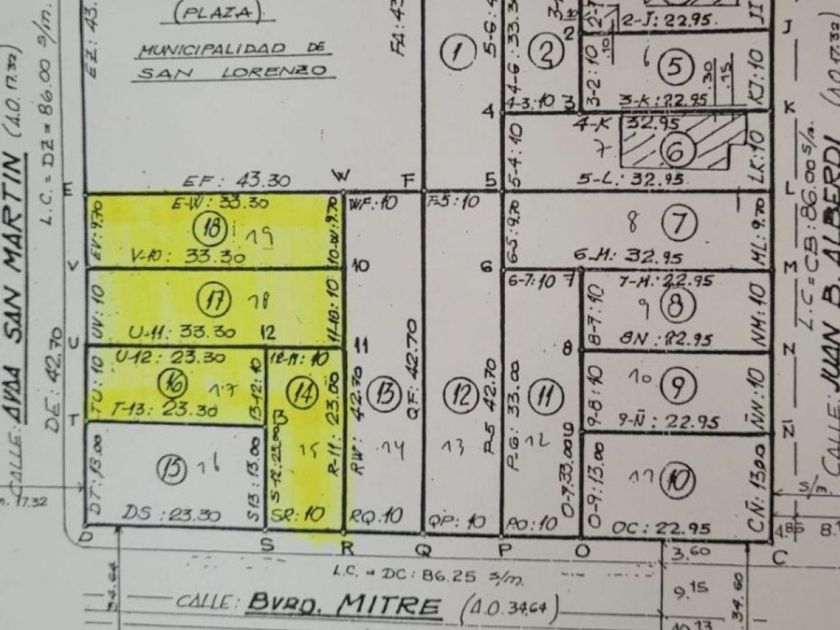 (PLAZA)
MUNICIPALIDAD DE
SAN LORENZO
EZ: 43.
FA: 43
1
5-6: 4
4-6: 33.3
2
4-3: 10
3
3-2: 10
2-J: 22.95
J
6
5
.10
.30
.15
3-K: 22.95
KJ: 10
K
4
4-K 32.95
7
6
5-4: 10
5-L: 32.95
LK: 10
L
E
EF: 43.30
W
F
5
E-W: 33.30
18
19
EV: 9.70
V-10: 33.30
10-W: 9.70
WF: 10
F-5: 10
6-5: 9.70
8
7
6-M: 32.95
ML: 9.70
M
V
10
6
6-7: 10
7
7-M: 22.95
UV: 10
17
18
U-11: 33.30
11-10: 10
8-7: 10
9
8
8N: 22.95
NM: 10
N
U
12
11
8
U-12: 23.30
12-11: 10
TU: 10
16
17
T-13: 23.30
13-12: 10
14
15
S-12: 23.00
R-11: 23.00
RW: 42.70
13
14
QF: 42.70
12
13
P-5 42.70
P-6: 33.00
11
12
O-7: 33.00
9-8: 10
10
9
9-Ñ: 22.95
ÑN: 10
T
DT: 13.00
15
16
DS: 23.30
S13: 13.00
SR: 10
RQ: 10
QP: 10
PO: 10
O-9: 13.00
11
10
OC: 22.95
CÑ: 13.00
D
S
R
Q
P
O
C
L.C. = DC: 86.25 s/m.
CALLE: BVRD. MITRE (A.O. 34.64)
34.64
3.60
9.15
10.13
34.60
4.85
17.32
s/m.
CALLE: AVDA SAN MARTIN (A.O. 17.32)
L.C. = DZ = 86.00 s/m.
DE: 42.70
L.C = CB: 86.00 s/m.
JUAN B. ALBERDI